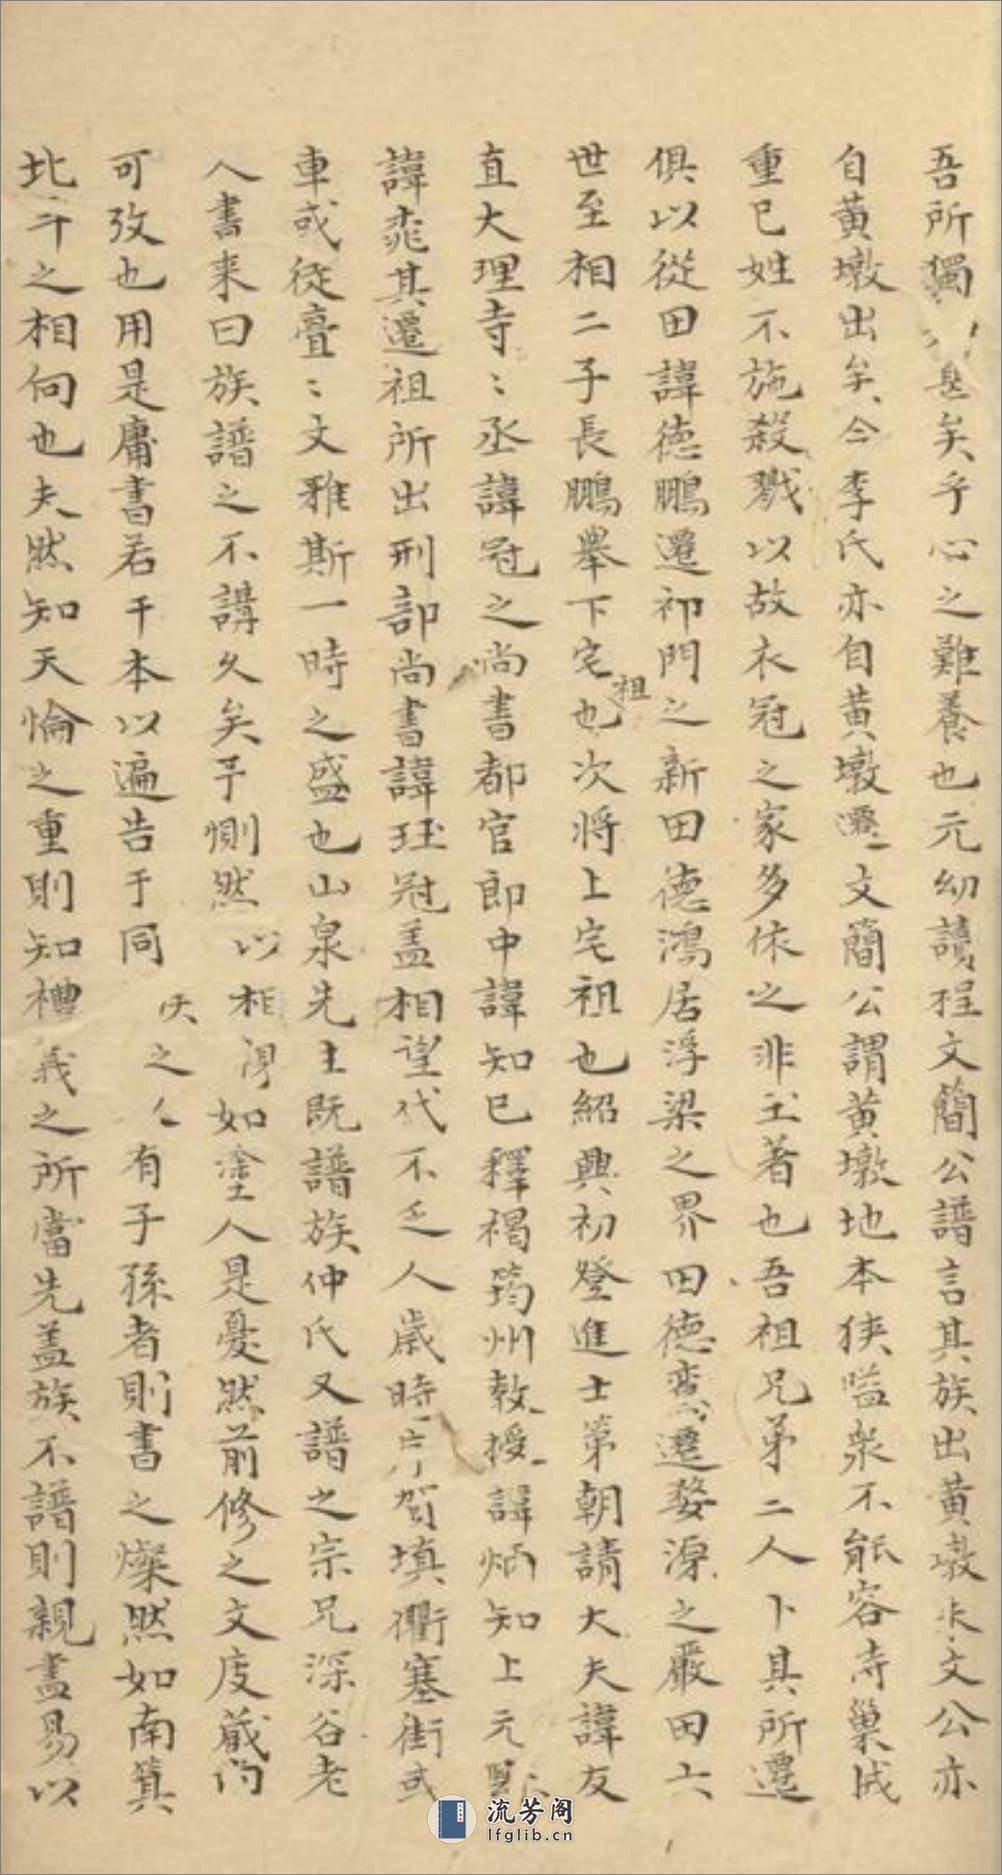 吾所獨矣乎心之難養也元幼讀程文簡公譜言其族出黃墩朱文公亦
自黃墩出矣今李氏亦自黃墩遷文簡公謂黃墩地本狹隘衆不能容寺巢賊
重已姓不施殺戮以故衣冠之家多依之非土著也吾祖兄弟二人卜其所遷
俱以從田諱德鵬遷祁門之新田德鴻居浮梁之界田德鸞遷婺源之嚴田六
世至相二子長鵬舉下宅祖也次將上宅祖也紹興初登進士第朝請大夫諱友
直大理寺〻丞諱冠之尚書都官郎中諱知已釋褐筠州教授諱炳知上元縣
諱其遷祖所出刑部尚書諱珏冠盖相望代不乏人歲時賀填衢塞街或
車或從亹〻文雅斯一時之盛也山泉先生既譜族仲氏又譜之宗兄深谷老
人書来曰族譜之不講久矣予惻然以相如塗人是憂然前修之文庋藏
可攷也用是庸書若干本以遍告于同之有子孫者則書之燦然如南箕
北斗之相向也夫然知天倫之重則知義之所當先盖族不譜則親盡易以
流芳阁
lfglib.cn